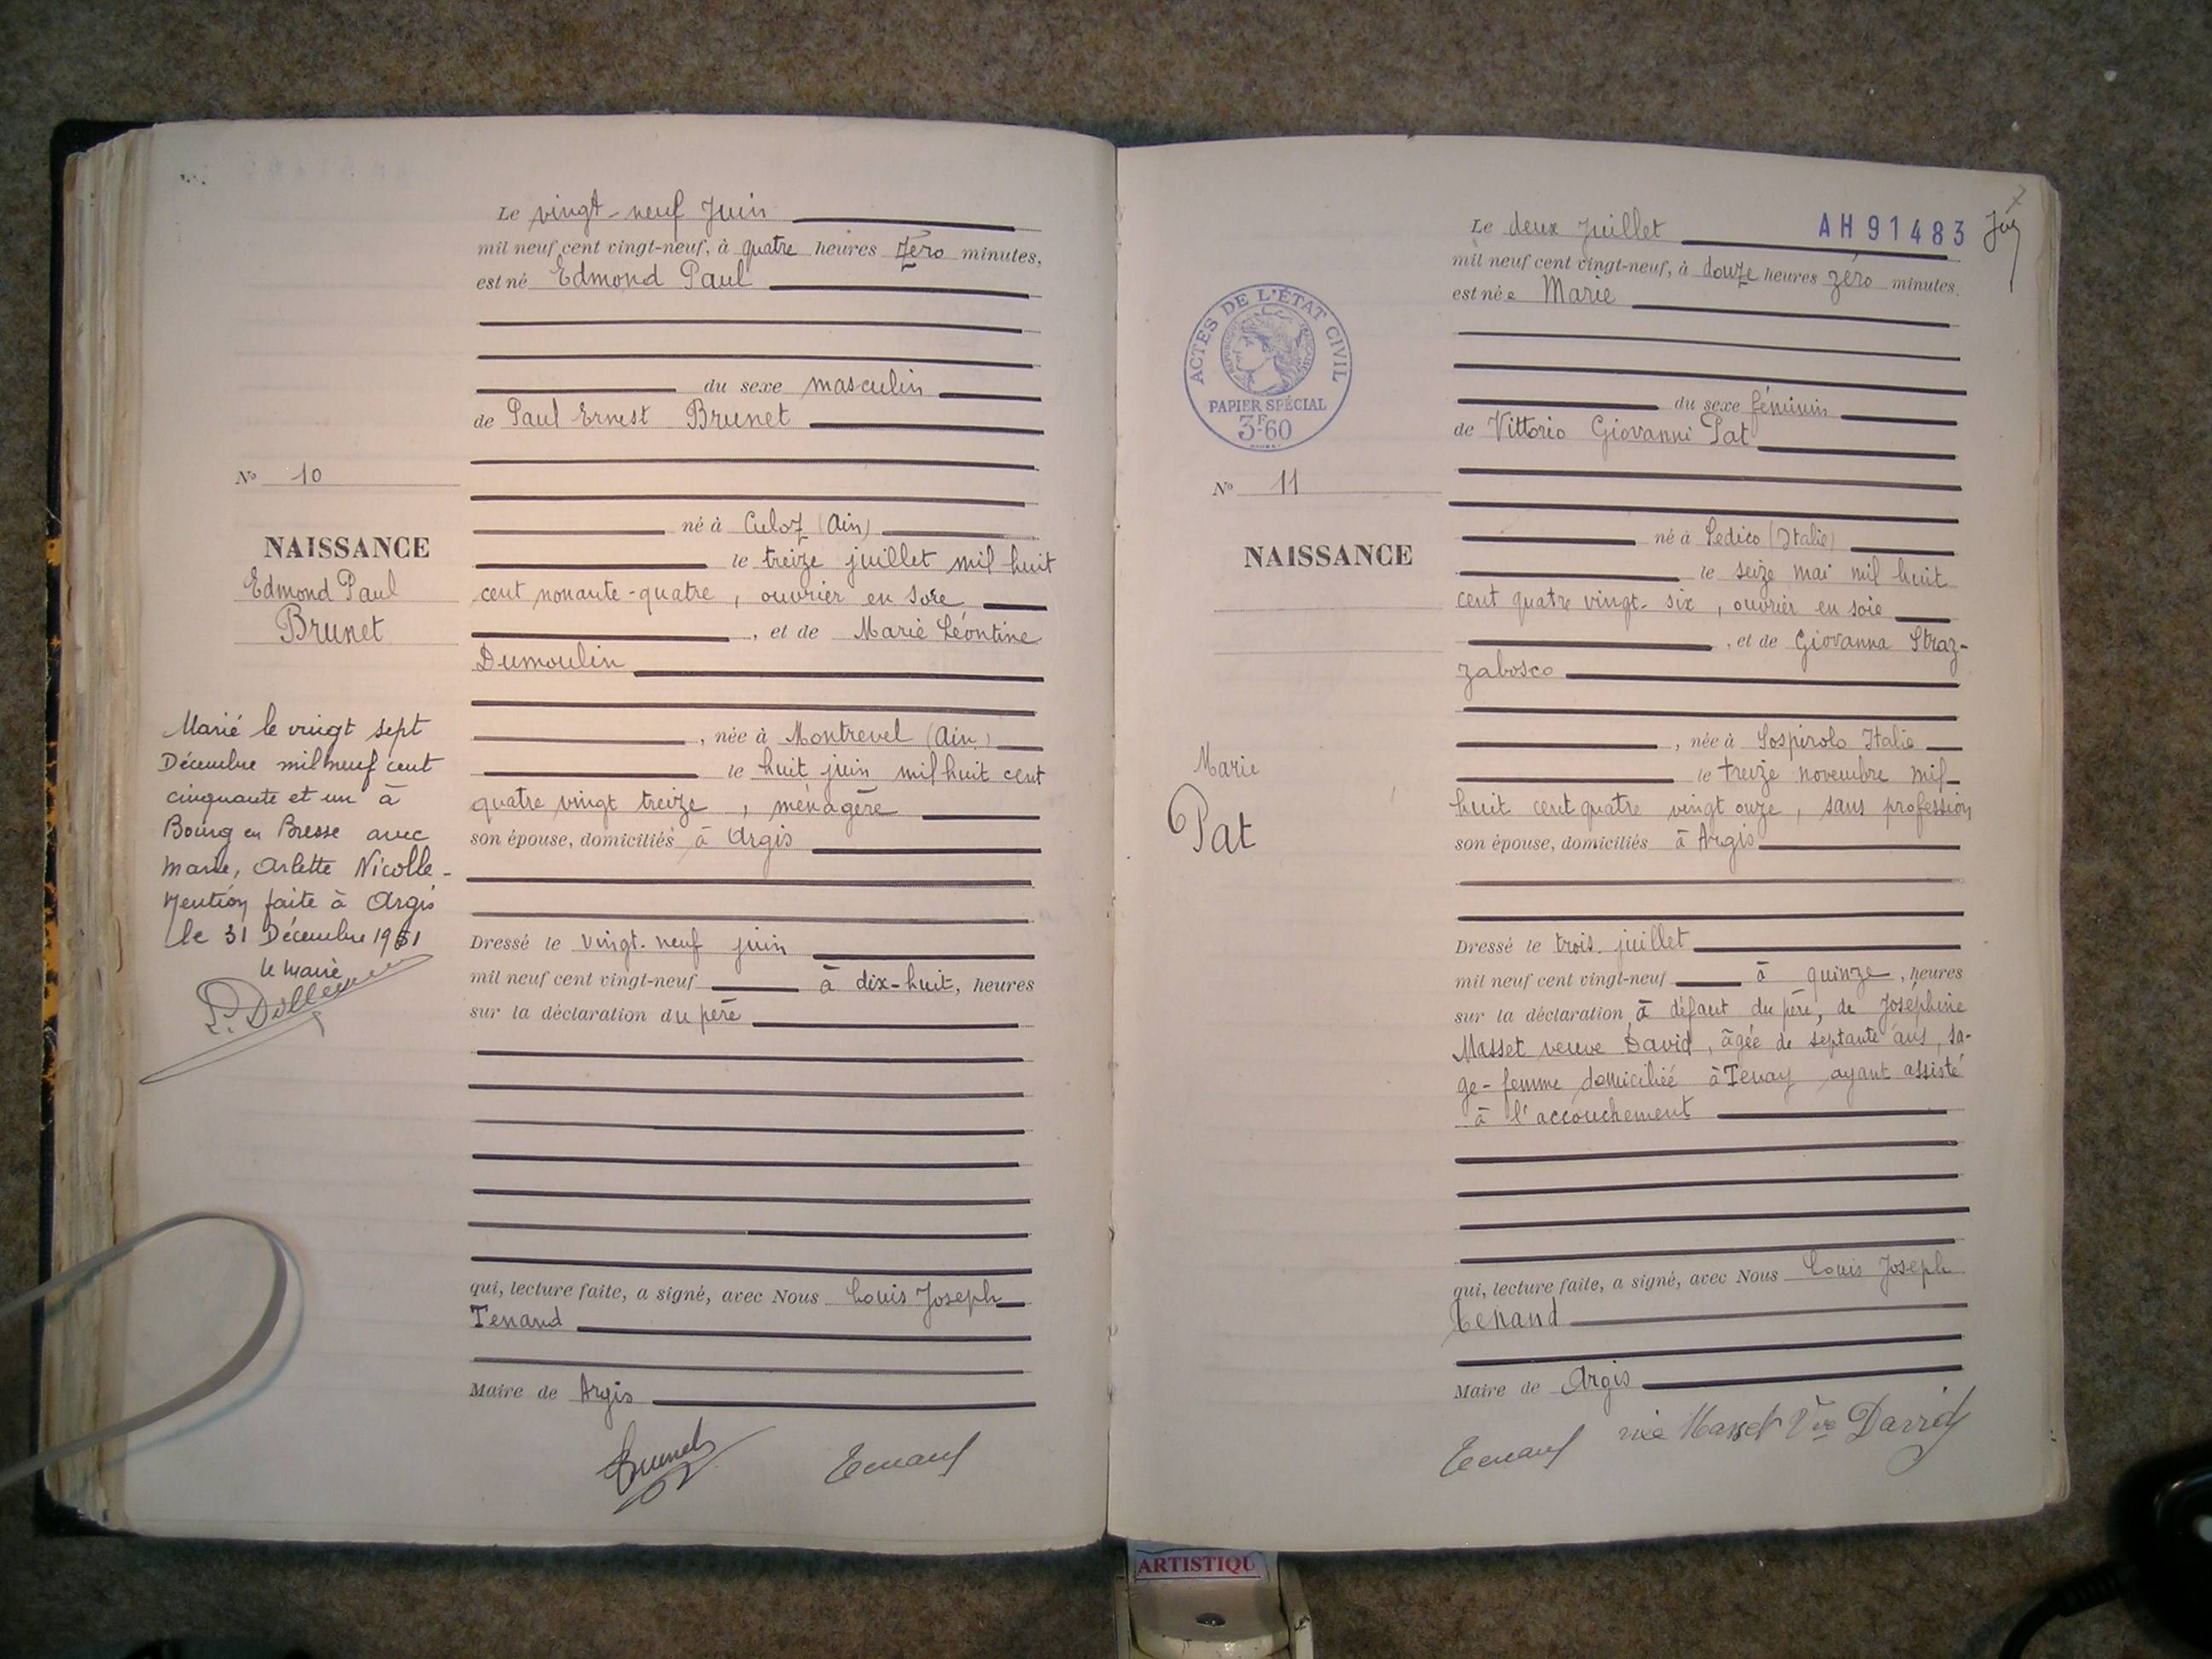 Le vingt-neuf Juin
mil neuf cent vingt-neuf, à quatre heures zéro minutes,
est né Edmond Paul
du sexe masculin
de Paul Ernest Brunet
né à Culoz (Ain)
le treize juillet mil huit
cent nonante-quatre, ouvrier en soie
, et de Marie Léontine
Dumoulin
, née à Montrevel (Ain)
le huit juin mil huit cent
quatre vingt treize, ménagère
son épouse, domiciliés à Argis
Dressé le vingt-neuf juin
mil neuf cent vingt-neuf à dix-huit, heures
sur la déclaration du père
qui, lecture faite, a signé, avec Nous Louis Joseph
Tenand
Maire de Argis
Brunet Tenand
No 10
NAISSANCE
Edmond Paul
Brunet
Marié le vingt sept
Décembre mil neuf cent
cinquante et un à
Bourg en Bresse avec
Marie, Arlette Nicolle -
Mention faite à Argis
le 31 Décembre 1951
le maire
AH91483
7
Le deux Juillet
mil neuf cent vingt-neuf, à douze heures zéro minutes.
est née Marie
du sexe féminin
de Vittorio Giovanni Pat
né à Sedico (Italie)
le seize mai mil huit
cent quatre vingt-six, ouvrier en soie
, et de Giovanna Straz-
zabosco
, née à Sospirolo Italie
le treize novembre mil
huit cent quatre vingt onze, sans profession
son épouse, domiciliés à Argis
Dressé le trois juillet
mil neuf cent vingt-neuf à quinze, heures
sur la déclaration à défaut du père, de Joséphine
Masset veuve David, âgée de septante ans, sa-
ge-femme domiciliée à Tenay ayant assisté
à l'accouchement
qui, lecture faite, a signé, avec Nous Louis Joseph
Tenand
Maire de Argis
Tenand Masset Vve David
ACTES DE L'ÉTAT CIVIL
PAPIER SPÉCIAL
3F60
No 11
NAISSANCE
Marie
Pat
ARTISTIQU